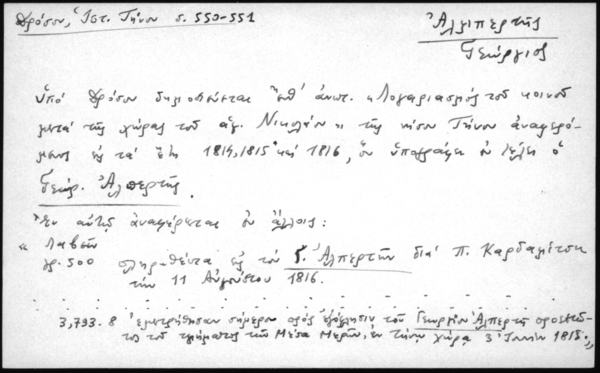 Δρόσου, Ἱστ. Τήνου σ. 550-551
Ἀλλιπερτῆς
Γεώργιος
ὑπό Δρόσου δημοσιεύεται ἔκθ. ἀνωτ. "Λογαριασμός τοῦ κοινοῦ
μετά τῆς χώρας τοῦ ἁγ. Νικολάου" τῆς νήσου Τήνου ἀναφερό-
μενος εἰς τά ἔτη 1814, 1815 καί 1816, ὃν ὑπογράφει ἐν τέλει ὁ
Γεώρ. Ἀλπερτῆς.
Ἐν αὐτῷ ἀναφέρεται ἐν ἄλλοις:
" Λαβεῖν
γρ. 500 πληρωθέντα εἰς τόν Γ. Ἀλπερτῆν διά Π. Καρδαμίτση
τήν 11 Αὐγούστου 1816.
3,793. 8 ἐμετρήθησαν σήμερον πρός ἐξόφλησιν τοῦ Γεωργίου Ἀλπερτῆ
τος τοῦ τμήματος τῶν Μέσα Μερῶν, ἐν Τήνῳ, χώρᾳ 3 1815."